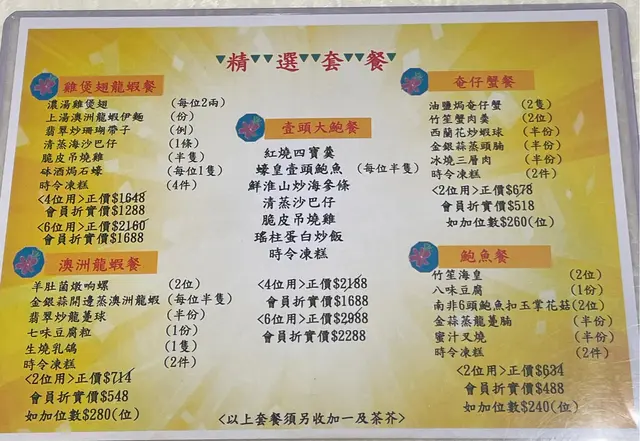 精選套餐
雞煲翅龍蝦餐
濃湯雞煲翅 (每位2兩)
上湯澳洲龍蝦伊麵 (份)
翡翠炒珊瑚帶子 (例)
清蒸海沙巴仔 (1條)
脆皮吊燒雞 (半隻)
砵酒焗石蠔 (每位1隻)
時令凍糕 (4件)
<4位用>正價$1648
會員折實價$1288
<6位用>正價$2160
會員折實價$1688
澳洲龍蝦餐
羊肚菌燉响螺 (2位)
金銀蒜開邊蒸澳洲龍蝦 (每位半隻)
翡翠炒龍躉球 (半份)
七味豆腐粒 (1份)
生燒乳鴿 (1隻)
時令凍糕 (2件)
<2位用>正價$714
會員折實價$548
如加位數$280(位)
壹頭大鮑餐
紅燒四寶羹
蠔皇壹頭鮑魚 (每位半隻)
鮮淮山炒海參條
清蒸沙巴仔
脆皮吊燒雞
瑤柱蛋白炒飯
時令凍糕
<4位用>正價$2188
會員折實價$1688
<6位用>正價$2988
會員折實價$2288
奄仔蟹餐
油鹽焗奄仔蟹 (2隻)
竹笙蟹肉羹 (2位)
西蘭花炒蝦球 (半份)
金銀蒜蒸頭腩 (半份)
冰燒三層肉 (半份)
時令凍糕 (2件)
<2位用>正價$678
會員折實價$518
如加位數$260(位)
鮑魚餐
竹笙海皇 (2位)
八味豆腐 (1份)
南非6頭鮑魚扣玉掌花菇(2位)
金蒜蒸龍躉腩 (半份)
蜜汁叉燒 (半份)
時令凍糕 (2件)
<2位用>正價$634
會員折實價$488
如加位數$240(位)
<以上套餐須另收加一及茶芥>